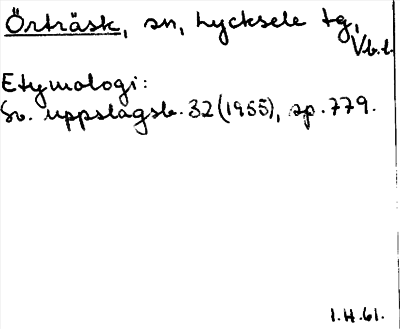 Örträsk, sn, Lycksele tg,
Vb.l.
Etymologi:
Sv. uppslagsb. 32 (1955), sp. 779.
1.H.61.